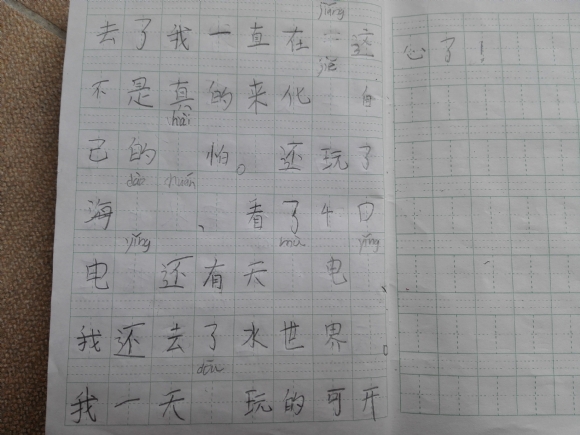 yīng
去了我一直在一这
不是真的来化 自
hài
己的 怕。还玩了
dào
海 、看了4口
yǐng yǐng
电 还有天 电、
我还去了水世界。
dōu
我一天 玩的可开
心了!